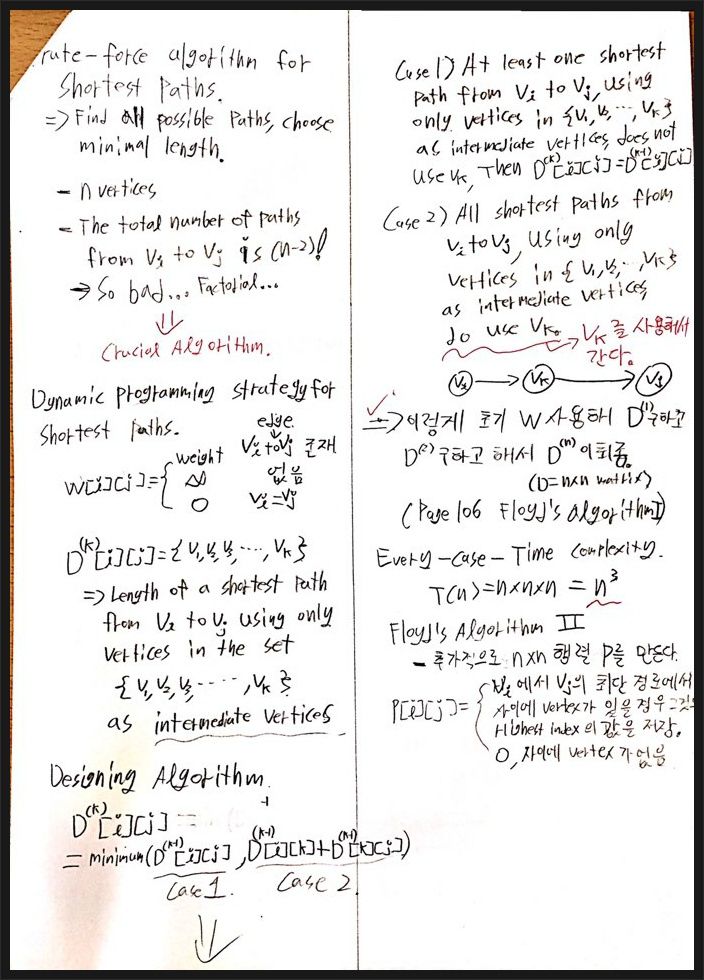 rute-force algorithm for
Shortest Paths.
=> Find all possible Paths, choose
minimal length.
- n vertices
- The total number of paths
from Vi to Vj is (n-2)!
→ So bad... Factorial...
⇓
Crucial Algorithm.
Dynamic programming strategy for
Shortest Paths.
edge
↓
W[i][j]={ weight Vi to Vj 존재
∞ 없음
0 Vi=Vj
D^(k)[i][j]={V1,V2,V3,...,Vk}
=> Length of a shortest path
from Vi to Vj using only
vertices in the set
{V1,V2,V3,.....,Vk}
as intermediate vertices
Designing Algorithm.
D^(k)[i][j] =
= minimum(D^(k-1)[i][j], D^(k-1)[i][k]+D^(k-1)[k][j])
Case 1. Case 2.
⇓
Case 1) At least one shortest
Path from Vi to Vj, using
only vertices in {V1,V2,...,Vk}
as intermediate vertices, does not
use Vk, Then D^(k)[i][j]=D^(k-1)[i][j]
Case 2) All shortest Paths from
Vi to Vj, Using only
vertices in {V1,V2,...,Vk}
as intermediate vertices,
do use Vk. → Vk를 사용해서
간다.
Vi → Vk → Vj
=> 이렇게 초기 W 사용해 D^(1)구하고
D^(2)구하고 해서 D^(n)이 최종.
(D=n×n matrix)
(Page 106 Floyd's algorithm I)
Every-case-Time Complexity.
T(n)=n×n×n = n^3
Floyd's Algorithm II
- 추가적으로 n×n 행렬 P를 만든다.
P[i][j]={ Vi에서 Vj의 최단 경로에서
사이에 vertex가 있을 경우 그것의
Highest index의 값을 저장.
0, 사이에 vertex가 없음